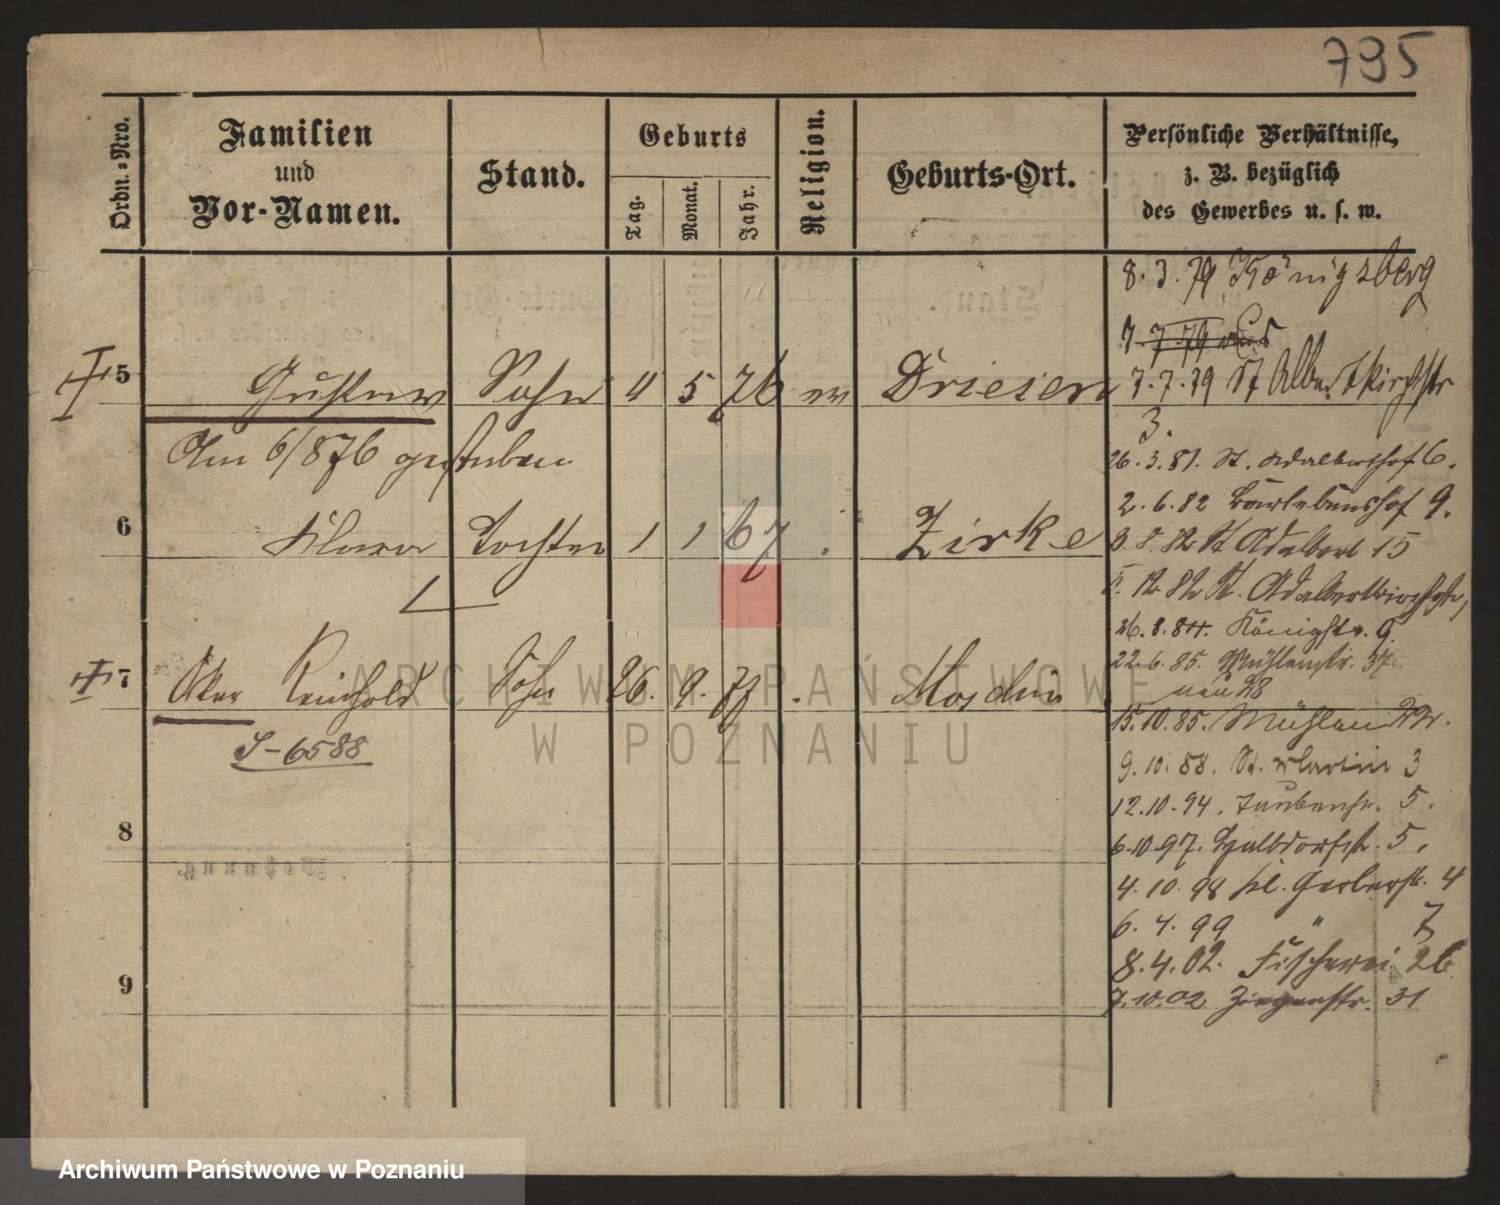 795
Ordn.-Nro.
Familien
und
Vor-Namen.
Stand.
Geburts
Tag.
Monat.
Jahr.
Religion.
Geburts-Ort.
Persönliche Verhältnisse,
z. B. bezüglich
des Gewerbes u. s. w.
8. 3. 79 Königsberg
7. 7. 79
5 Gustav Sohn 4 5 76 ev Driesen
7. 7. 79 St Adalbertkirchstr
3.
Am 6/8 76 gestorben
26. 3. 81. St. Adalberthof 6.
2. 6. 82 Barlebenshof 9.
6 Klara Tochter 1 1 67 Zirke
3. 8. 82 St Adalbert 15
12 82 St. Adalbertkirchstr,
26. 8. 84. Königstr. 9.
22. 6. 85. Mühlenstr. 37.
neu 28
7 Reinhold Sohn 26. 9. 77 Moschin
S-6588
15. 10. 85. Mühlen 22.
9. 10. 88. St. Martin 3
12. 10. 94. Taubenstr. 5.
8
6. 10. 97. Halbdorfstr. 5.
4. 10. 98 kl. Gerberstr. 4
6. 4. 99 " 7
8. 4. 02. Fischerei 26
9
7. 10. 02 Ziegenstr. 31
ARCHIWUM PAŃSTWOWE
W POZNANIU
Archiwum Państwowe w Poznaniu